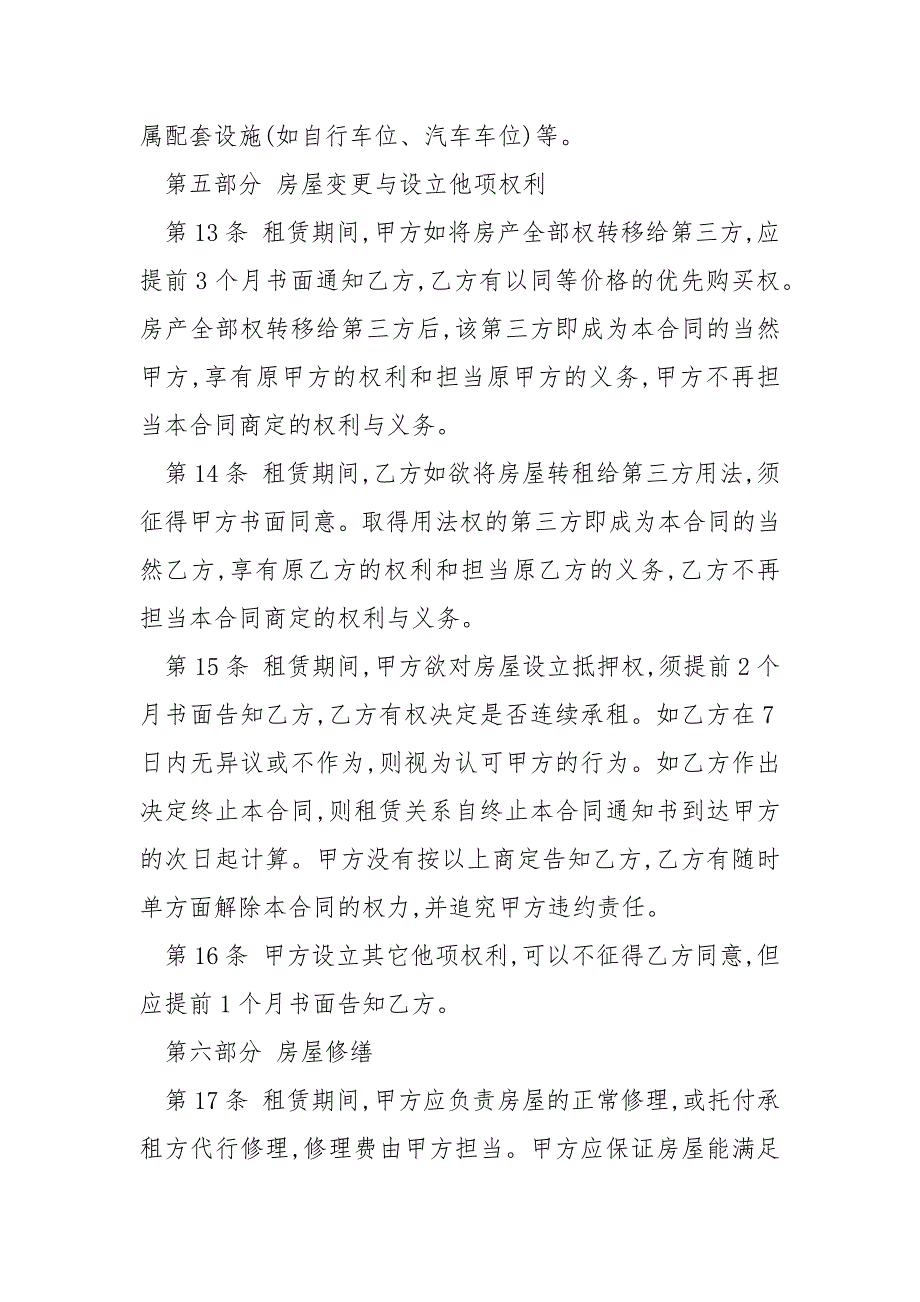 属配套设施(如自行车位、汽车车位)等。
第五部分 房屋变更与设立他项权利
第13条 租赁期间,甲方如将房产全部权转移给第三方,应
提前3个月书面通知乙方,乙方有以同等价格的优先购买权。
房产全部权转移给第三方后,该第三方即成为本合同的当然
甲方,享有原甲方的权利和担当原甲方的义务,甲方不再担
当本合同商定的权利与义务。
第14条 租赁期间,乙方如欲将房屋转租给第三方用法,须
征得甲方书面同意。取得用法权的第三方即成为本合同的当
然乙方,享有原乙方的权利和担当原乙方的义务,乙方不再
担当本合同商定的权利与义务。
第15条 租赁期间,甲方欲对房屋设立抵押权,须提前2个
月书面告知乙方,乙方有权决定是否连续承租。如乙方在7
日内无异议或不作为,则视为认可甲方的行为。如乙方作出
决定终止本合同,则租赁关系自终止本合同通知书到达甲方
的次日起计算。甲方没有按以上商定告知乙方,乙方有随时
单方面解除本合同的权力,并追究甲方违约责任。
第16条 甲方设立其它他项权利,可以不征得乙方同意,但
应提前1个月书面告知乙方。
第六部分 房屋修缮
第17条 租赁期间,甲方应负责房屋的正常修理,或托付承
租方代行修理,修理费由甲方担当。甲方应保证房屋能满足